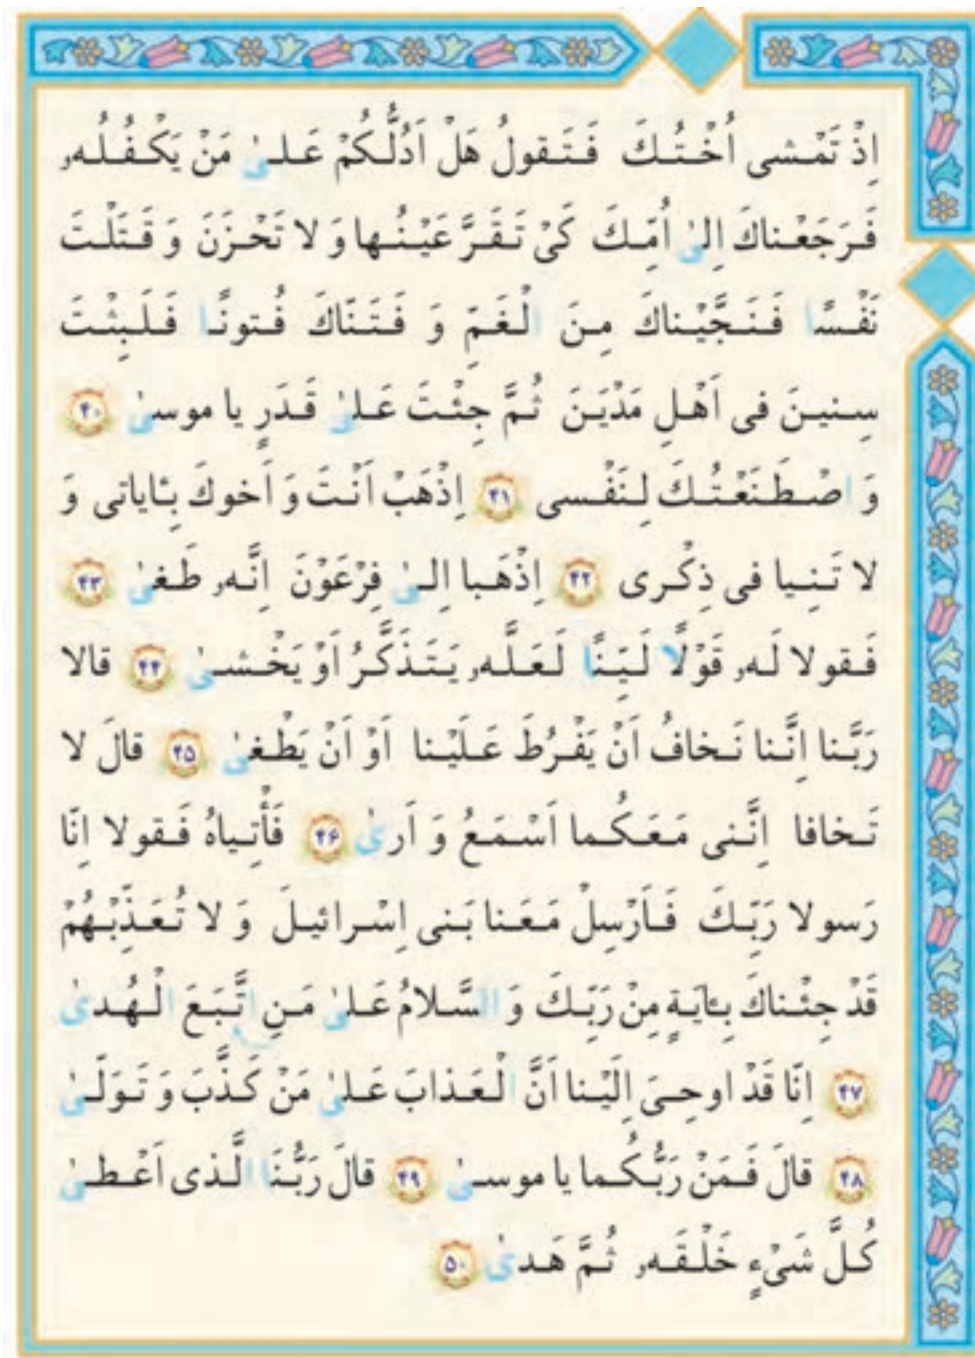 اِذْ تَمْشى اُخْتُكَ فَتَقولُ هَلْ اَدُلُّكُمْ عَلىٰ مَنْ يَكْفُلُهُۥ
فَرَجَعْناكَ اِلىٰ اُمِّكَ كَىْ تَقَرَّ عَيْنُها وَ لا تَحْزَنَ وَ قَتَلْتَ
نَفْسًا فَنَجَّيْناكَ مِنَ الْغَمِّ وَ فَتَنّاكَ فُتونًا فَلَبِثْتَ
سِنينَ فى اَهْلِ مَدْيَنَ ثُمَّ جِئْتَ عَلىٰ قَدَرٍ يا موسىٰ ﴿۴۰﴾
وَ اصْطَنَعْتُكَ لِنَفْسى ﴿۴۱﴾ اِذْهَبْ اَنْتَ وَ اَخوكَ بِـٔاياتى وَ
لا تَنِيا فى ذِكْرى ﴿۴۲﴾ اِذْهَبا اِلىٰ فِرْعَوْنَ اِنَّهُۥ طَغىٰ ﴿۴۳﴾
فَقولا لَهُۥ قَوْلًا لَيِّنًا لَعَلَّهُۥ يَتَذَكَّرُ اَوْ يَخْشىٰ ﴿۴۴﴾ قالا
رَبَّنا اِنَّنا نَخافُ اَنْ يَفْرُطَ عَلَيْنا اَوْ اَنْ يَطْغىٰ ﴿۴۵﴾ قالَ لا
تَخافا اِنَّنى مَعَكُما اَسْمَعُ وَ اَرىٰ ﴿۴۶﴾ فَأْتِياهُ فَقولا اِنّا
رَسولا رَبِّكَ فَاَرْسِلْ مَعَنا بَنى اِسْرائيلَ وَ لا تُعَذِّبْهُمْ
قَدْ جِئْناكَ بِـٔايَةٍ مِنْ رَبِّكَ وَ السَّلامُ عَلىٰ مَنِ اتَّبَعَ الْهُدىٰ
﴿۴۷﴾ اِنّا قَدْ اوحِىَ اِلَيْنا اَنَّ الْعَذابَ عَلىٰ مَنْ كَذَّبَ وَ تَوَلّىٰ
﴿۴۸﴾ قالَ فَمَنْ رَبُّكُما يا موسىٰ ﴿۴۹﴾ قالَ رَبُّنَا الَّذى اَعْطىٰ
كُلَّ شَىْءٍ خَلْقَهُۥ ثُمَّ هَدىٰ ﴿۵۰﴾